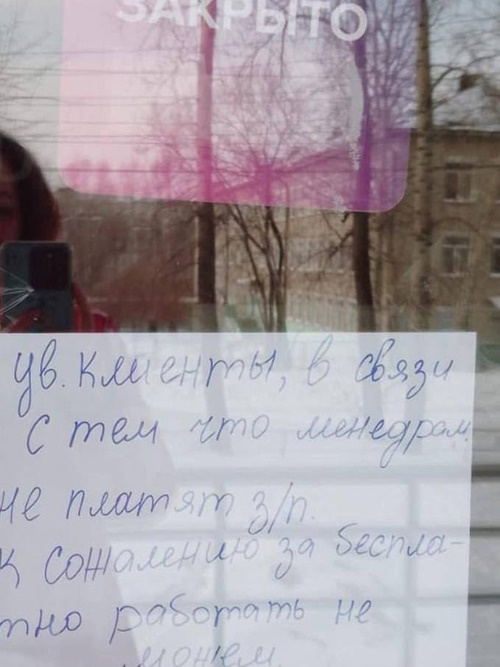 ЗАКРЫТО
ув. клиенты, в связи
с тем что менедрам
не платят з/п.
к сожалению за беспла-
тно работать не
можем.